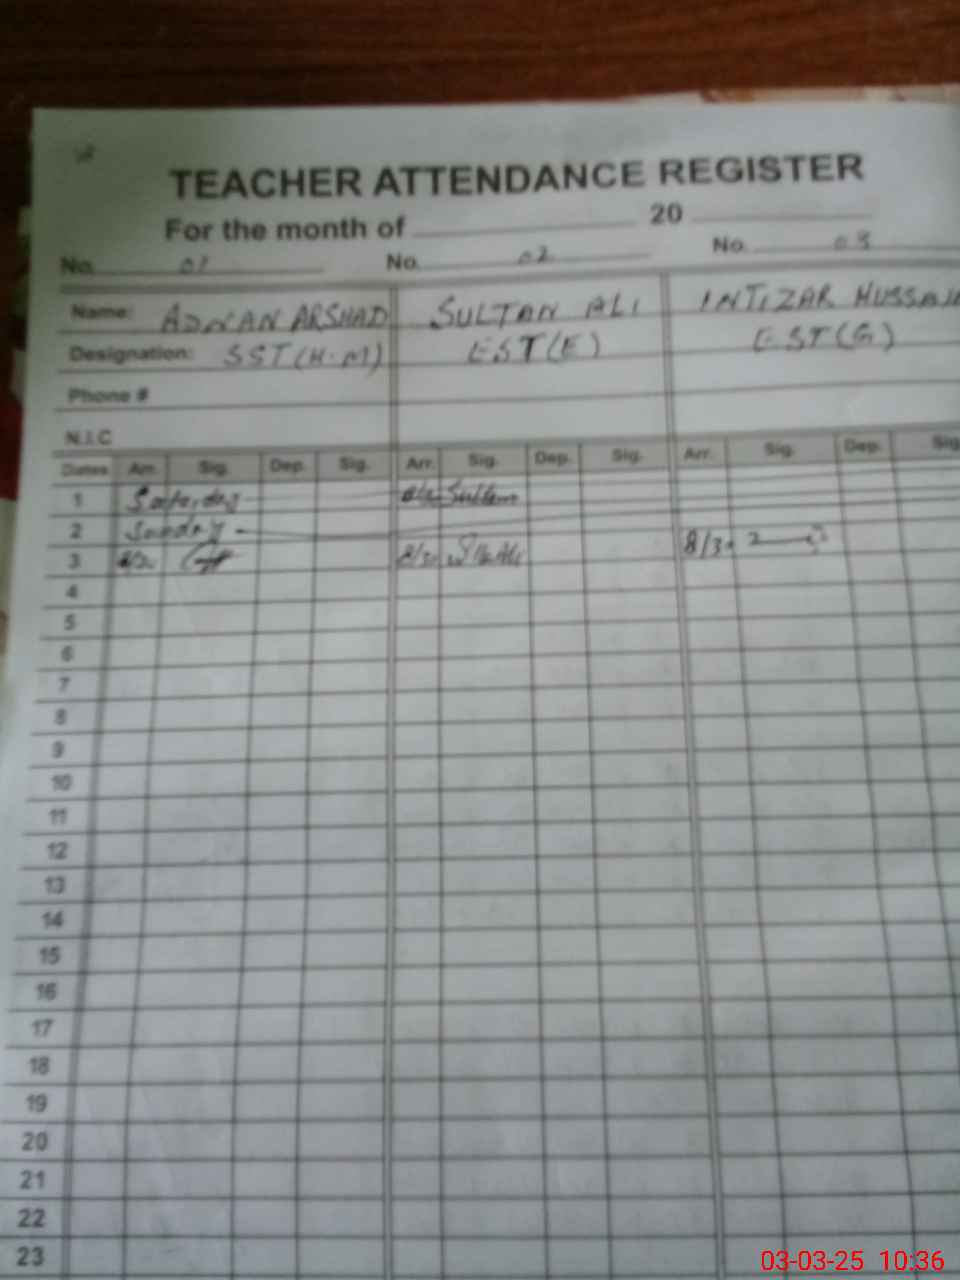 TEACHER ATTENDANCE REGISTER
For the month of 20
No. 01 No. 02 No. 03
Name: ADNAN ARSHAD SULTAN ALI INTIZAR HUSSAIN
Designation: SST(H.M) EST(E) EST(G)
Phone #
N.I.C
Dates Arr. Sig. Dep. Sig. Arr. Sig. Dep. Sig. Arr. Sig. Dep. Sig.
1
2 Sunday
3 8/3. 8/3.
4
5
6
7
8
9
10
11
12
13
14
15
16
17
18
19
20
21
22
23
03-03-25 10:36